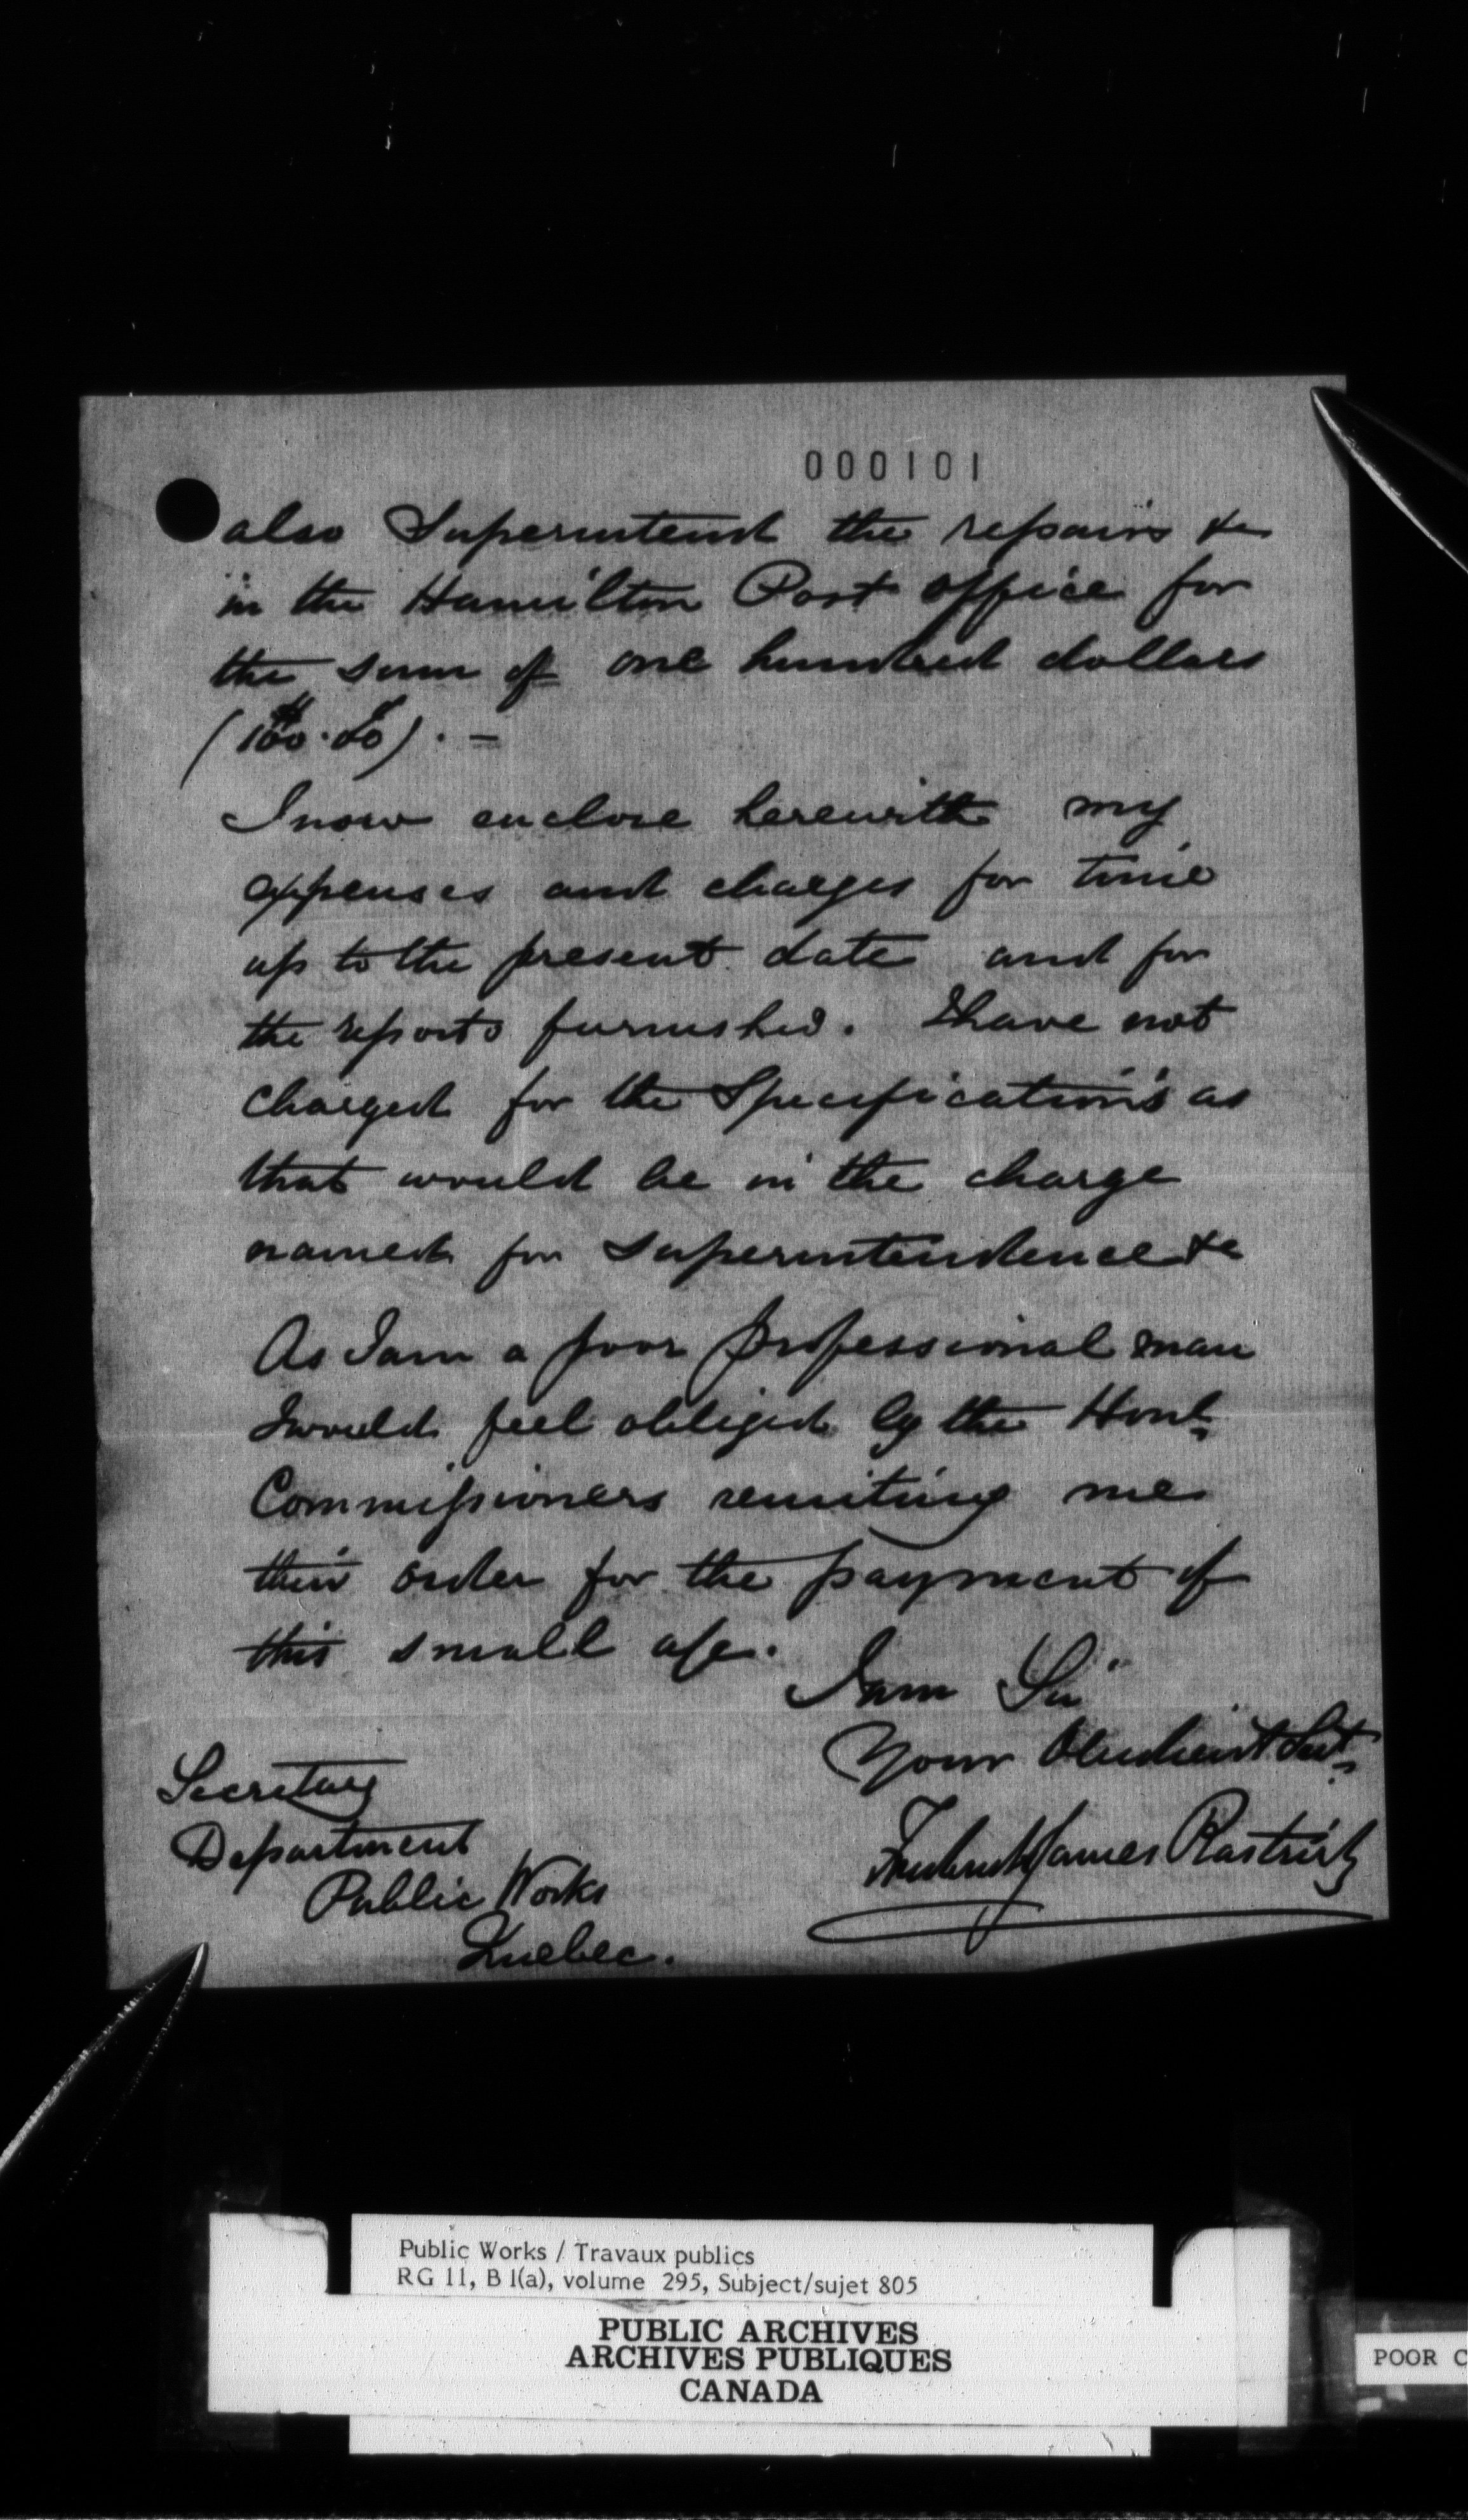 000101
also Superintend the repairs &c
in the Hamilton Post office for
the sum of one hundred dollars
($100.00). –
I now enclose herewith my
expenses and charges for time
up to the present date and for
the reports furnished. I have not
charged for the Specifications as
that would be in the charge
named for superintendence &c
As I am a poor professional man
I would feel obliged by the Honl
Commissioners remiting me
their order for the payment of
this small a/c.
I am Sir
Your Obedient Sert
Frederick James Rastrick
Secretary
Department
Public Works
Quebec.
Public Works / Travaux publics
RG 11, B 1(a), volume 295, Subject/sujet 805
PUBLIC ARCHIVES
ARCHIVES PUBLIQUES
CANADA
POOR C